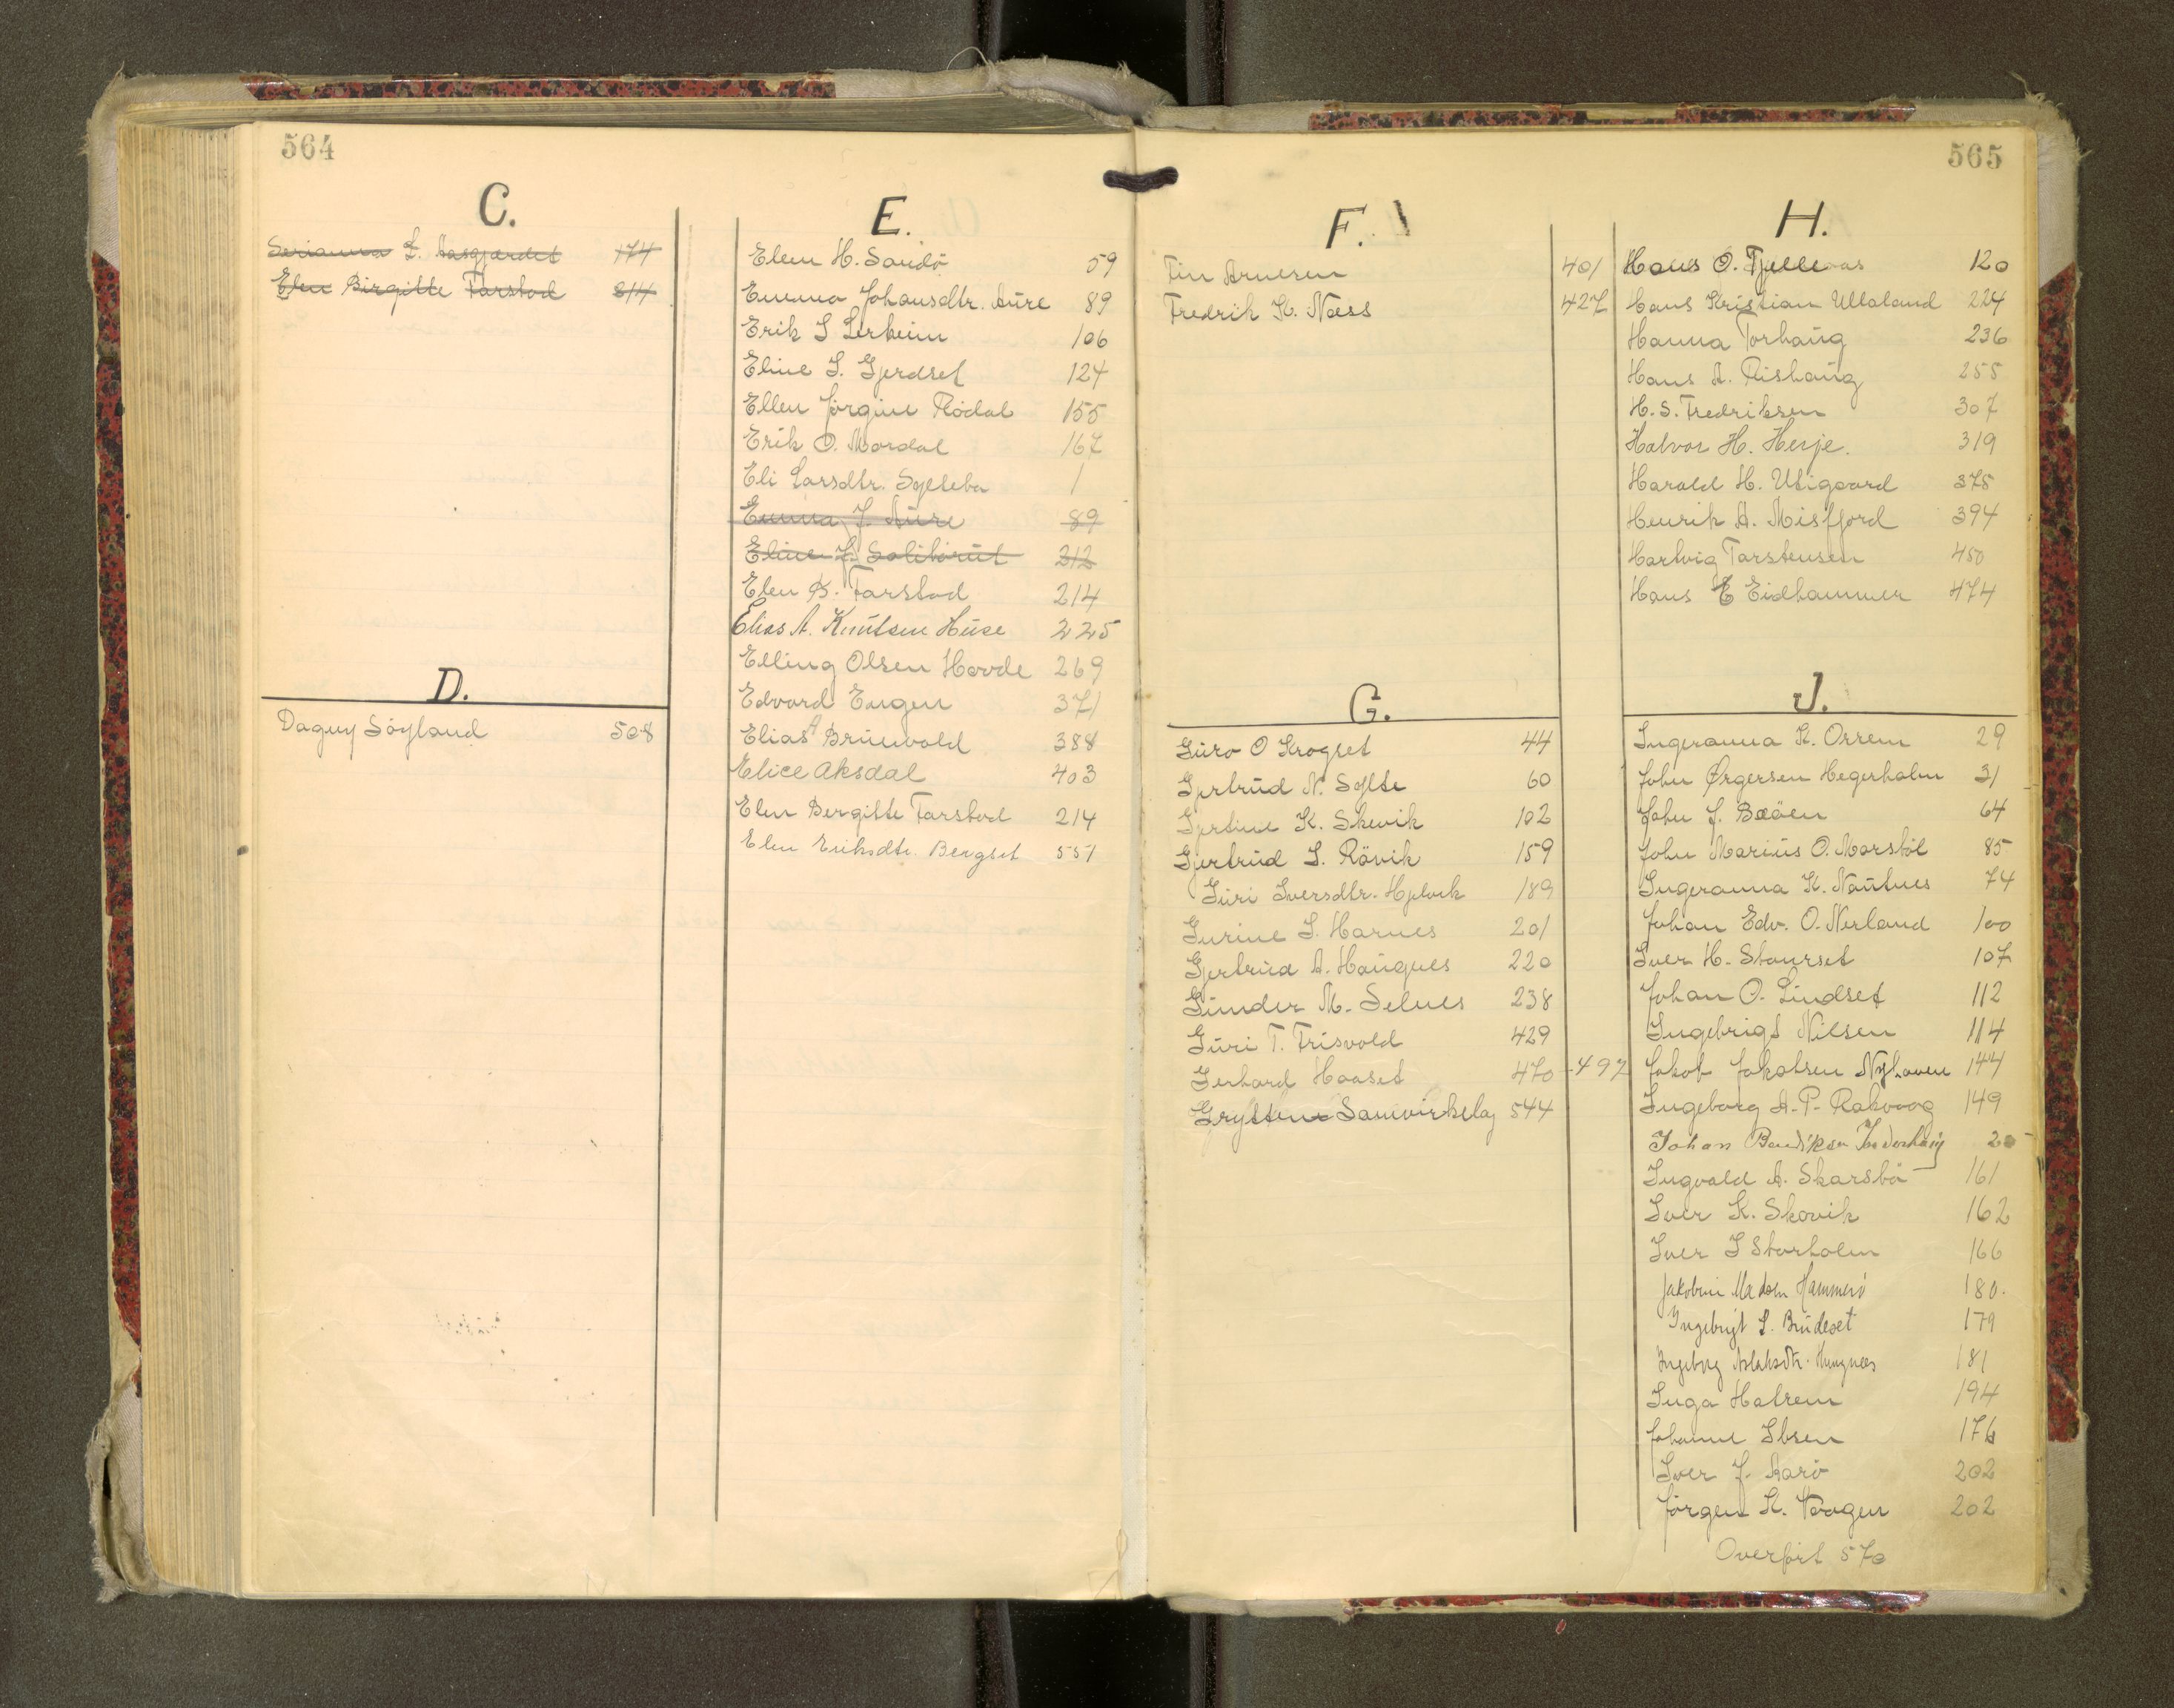 564
C.
Serianna L. Aasgjærdet 174
Elen Birgitte Farstad 214
D.
Dagny Söyland 508
E.
Elen H. Sandö 59
Emma Johansdtr. Aure 89
Erik L Lerheim 106
Eline L. Gjerdset 124
Ellen Jörgine Rödal 155
Erik O. Mordal 167
Eli Larsdtr. Sylteba 1
Emma J. Aure 89
Eline J. 212
Elen B. Farstad 214
Elias A. Knutsen Huse 225
Elling Olsen Hovde 269
Edvard Engen 371
Elias A Brunvold 388
Elice Aksdal 403
Elen Bergitte Farstad 214
Elen Eriksdtr. Bergset 551
565
F.
Finn Arnesen 401
Fredrik K. Næss 427
G.
Guro O Krogset 44
Gjertrud N. Sylte 60
Gjertine K. Skevik 102
Gjertrud L. Rövik 159
Guri Iversdtr. Hjelvik 189
Gurine L. Harnes 201
Gjertrud A. Haugnes 220
Gunder M. Selnes 238
Guri T. Frisvold 429
Gerhard Haaset 470 - 497
Gryttens Samvirkelag 544
H.
Hans O. Tjelleaas 120
Hans Kristian Ullaland 224
Hanna Torhaug 236
Hans A. Rishaug 255
H. S. Fredriksen 307
Halvor H. Herje. 319
Harald H. Utigaard 375
Henrik A. Misfjord 394
Hartvig Torstensen 450
Hans E Eidhammer 474
J.
Ingeranna K. Orrem 29
John Ørgersen Hegerholm 31
John J. Bøöen 64
John Marius O. Marstöl 85
Ingeranna K. Nautnes 74
Johan Edv. O. Nerland 100
Iver H. Stourset 107
Johan O. Lindset 112
Ingebrigt Nilsen 114
Jakob Jakobsen Nyhaven 144
Ingeborg A. P. Rakvaag 149
Johan Bendiksen 20
Ingvald A. Skarsbö 161
Iver K. Skovik 162
Iver L Storholm 166
Jakobine Madsen Hammerö 180.
Ingebrigt L. Brudeset 179
Ingeborg Aslaksdtr. 181
Inga Halrem 194
Johanne Ibsen 176
Iver J. Aarö 202
Jörgen K. Vaagen 202
Overfört 570